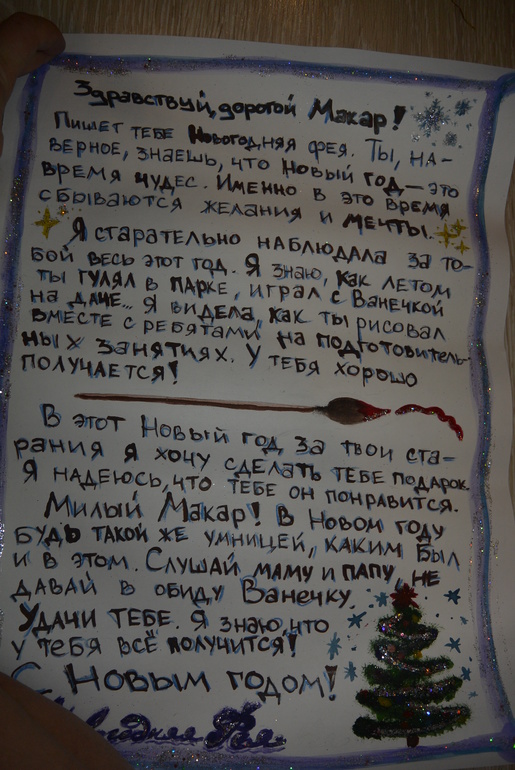 Здравствуй, дорогой Макар!
Пишет тебе Новогодняя фея. Ты, на-
верное, знаешь, что Новый год — это
время чудес. Именно в это время
сбываются желания и мечты.
Я старательно наблюдала за то-
бой весь этот год. Я знаю, как летом
ты гулял в парке, играл с Ванечкой
на даче... Я видела, как ты рисовал
вместе с ребятами на подготовитель-
ных занятиях. У тебя хорошо
получается!
В этот Новый год за твои ста-
рания я хочу сделать тебе подарок.
Я надеюсь, что тебе он понравится.
Милый Макар! В Новом году
будь такой же умницей, каким был
и в этом. Слушай маму и папу, не
давай в обиду Ванечку.
Удачи тебе. Я знаю, что
у тебя всё получится!
С Новым годом!
Фея